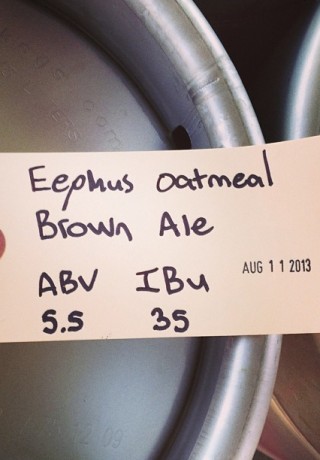 Eephus oatmeal
Brown Ale
ABV IBU
5.5 35
AUG 11 2013